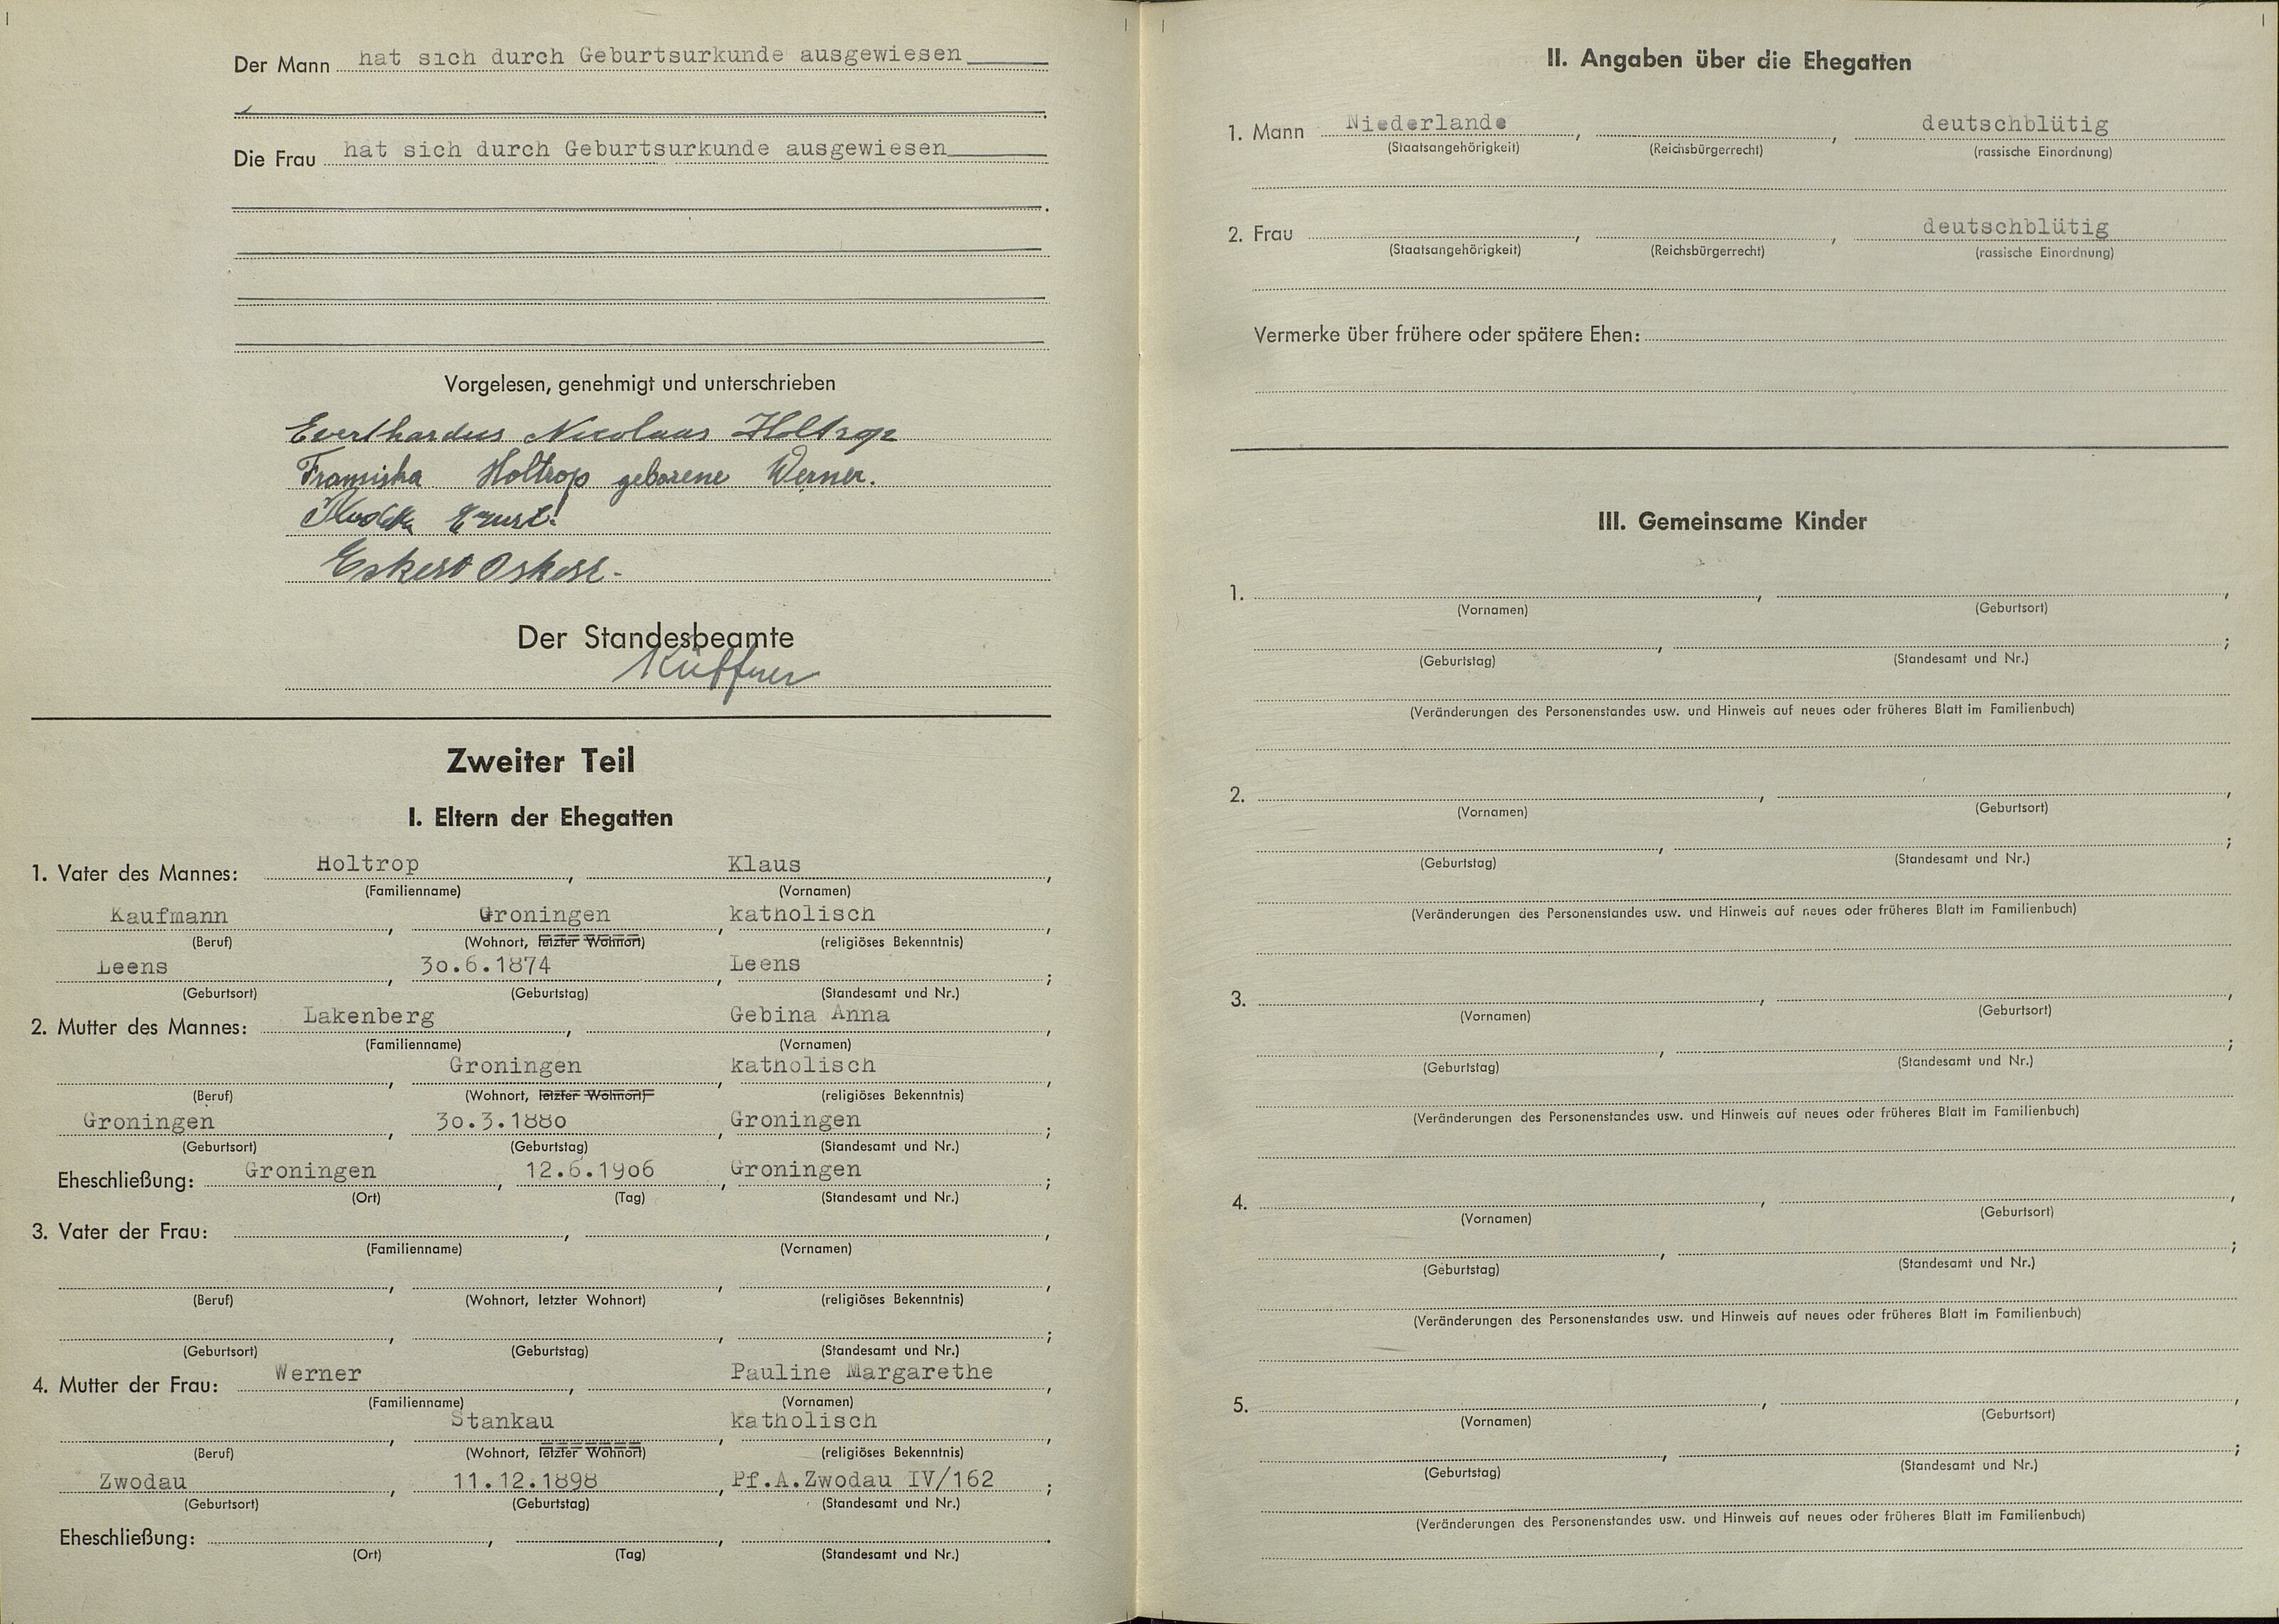 Der Mann hat sich durch Geburtsurkunde ausgewiesen
Die Frau hat sich durch Geburtsurkunde ausgewiesen
Vorgelesen, genehmigt und unterschrieben
Everthardus Nicolaas Holtrop
Franziska Holtrop geborene Werner.
Ernst
Eckert Oskar
Der Standesbeamte
Küffner
Zweiter Teil
I. Eltern der Ehegatten
1. Vater des Mannes: Holtrop, Klaus,
(Familienname) (Vornamen)
Kaufmann, Groningen, katholisch,
(Beruf) (Wohnort, letzter Wohnort) (religiöses Bekenntnis)
Leens, 30.6.1874, Leens;
(Geburtsort) (Geburtstag) (Standesamt und Nr.)
2. Mutter des Mannes: Lakenberg, Gebina Anna,
(Familienname) (Vornamen)
, Groningen, katholisch,
(Beruf) (Wohnort, letzter Wohnort) (religiöses Bekenntnis)
Groningen, 30.3.1880, Groningen;
(Geburtsort) (Geburtstag) (Standesamt und Nr.)
Eheschließung: Groningen, 12.6.1906, Groningen;
(Ort) (Tag) (Standesamt und Nr.)
3. Vater der Frau: , ,
(Familienname) (Vornamen)
, , ,
(Beruf) (Wohnort, letzter Wohnort) (religiöses Bekenntnis)
, , ;
(Geburtsort) (Geburtstag) (Standesamt und Nr.)
4. Mutter der Frau: Werner, Pauline Margarethe,
(Familienname) (Vornamen)
, Stankau, katholisch,
(Beruf) (Wohnort, letzter Wohnort) (religiöses Bekenntnis)
Zwodau, 11.12.1898, Pf.A.Zwodau IV/162;
(Geburtsort) (Geburtstag) (Standesamt und Nr.)
Eheschließung: , , .
(Ort) (Tag) (Standesamt und Nr.)
II. Angaben über die Ehegatten
1. Mann Niederlande, , deutschblütig
(Staatsangehörigkeit) (Reichsbürgerrecht) (rassische Einordnung)
2. Frau , , deutschblütig
(Staatsangehörigkeit) (Reichsbürgerrecht) (rassische Einordnung)
Vermerke über frühere oder spätere Ehen:
III. Gemeinsame Kinder
1. , ,
(Vornamen) (Geburtsort)
, ;
(Geburtstag) (Standesamt und Nr.)
(Veränderungen des Personenstandes usw. und Hinweis auf neues oder früheres Blatt im Familienbuch)
2. , ,
(Vornamen) (Geburtsort)
, ;
(Geburtstag) (Standesamt und Nr.)
(Veränderungen des Personenstandes usw. und Hinweis auf neues oder früheres Blatt im Familienbuch)
3. , ,
(Vornamen) (Geburtsort)
, ;
(Geburtstag) (Standesamt und Nr.)
(Veränderungen des Personenstandes usw. und Hinweis auf neues oder früheres Blatt im Familienbuch)
4. , ,
(Vornamen) (Geburtsort)
, ;
(Geburtstag) (Standesamt und Nr.)
(Veränderungen des Personenstandes usw. und Hinweis auf neues oder früheres Blatt im Familienbuch)
5. , ,
(Vornamen) (Geburtsort)
, ;
(Geburtstag) (Standesamt und Nr.)
(Veränderungen des Personenstandes usw. und Hinweis auf neues oder früheres Blatt im Familienbuch)